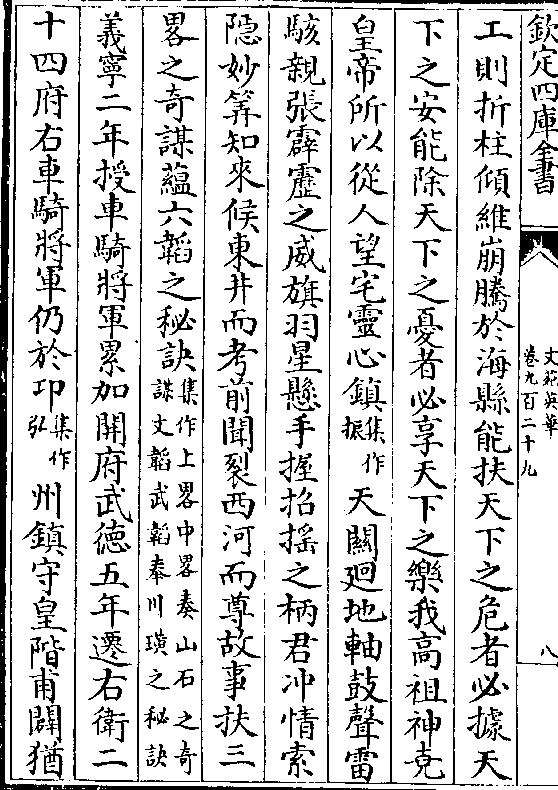 欽定四庫全書
文苑英華
卷九百二十九
八
工則折柱傾維崩騰於海縣能扶天下之危者必據天
下之安能除天下之憂者必享天下之樂我高祖神堯
皇帝所以從人望宅靈心鎮集作振天關廻地軸鼓聲雷
駭親張霹靂之威旗羽星懸手握招摇之柄君冲情索
隠妙筭知來候東井而考前聞裂西河而尊故事扶三
畧之奇謀蘊六韜之秘訣集作上畧中畧奏山石之奇謀文韜武韜奉川璜之秘訣
義寧二年授車騎將軍累加開府武徳五年遷右衛二
十四府右車騎將軍仍於卭集作弘州鎮守皇階甫闢猶